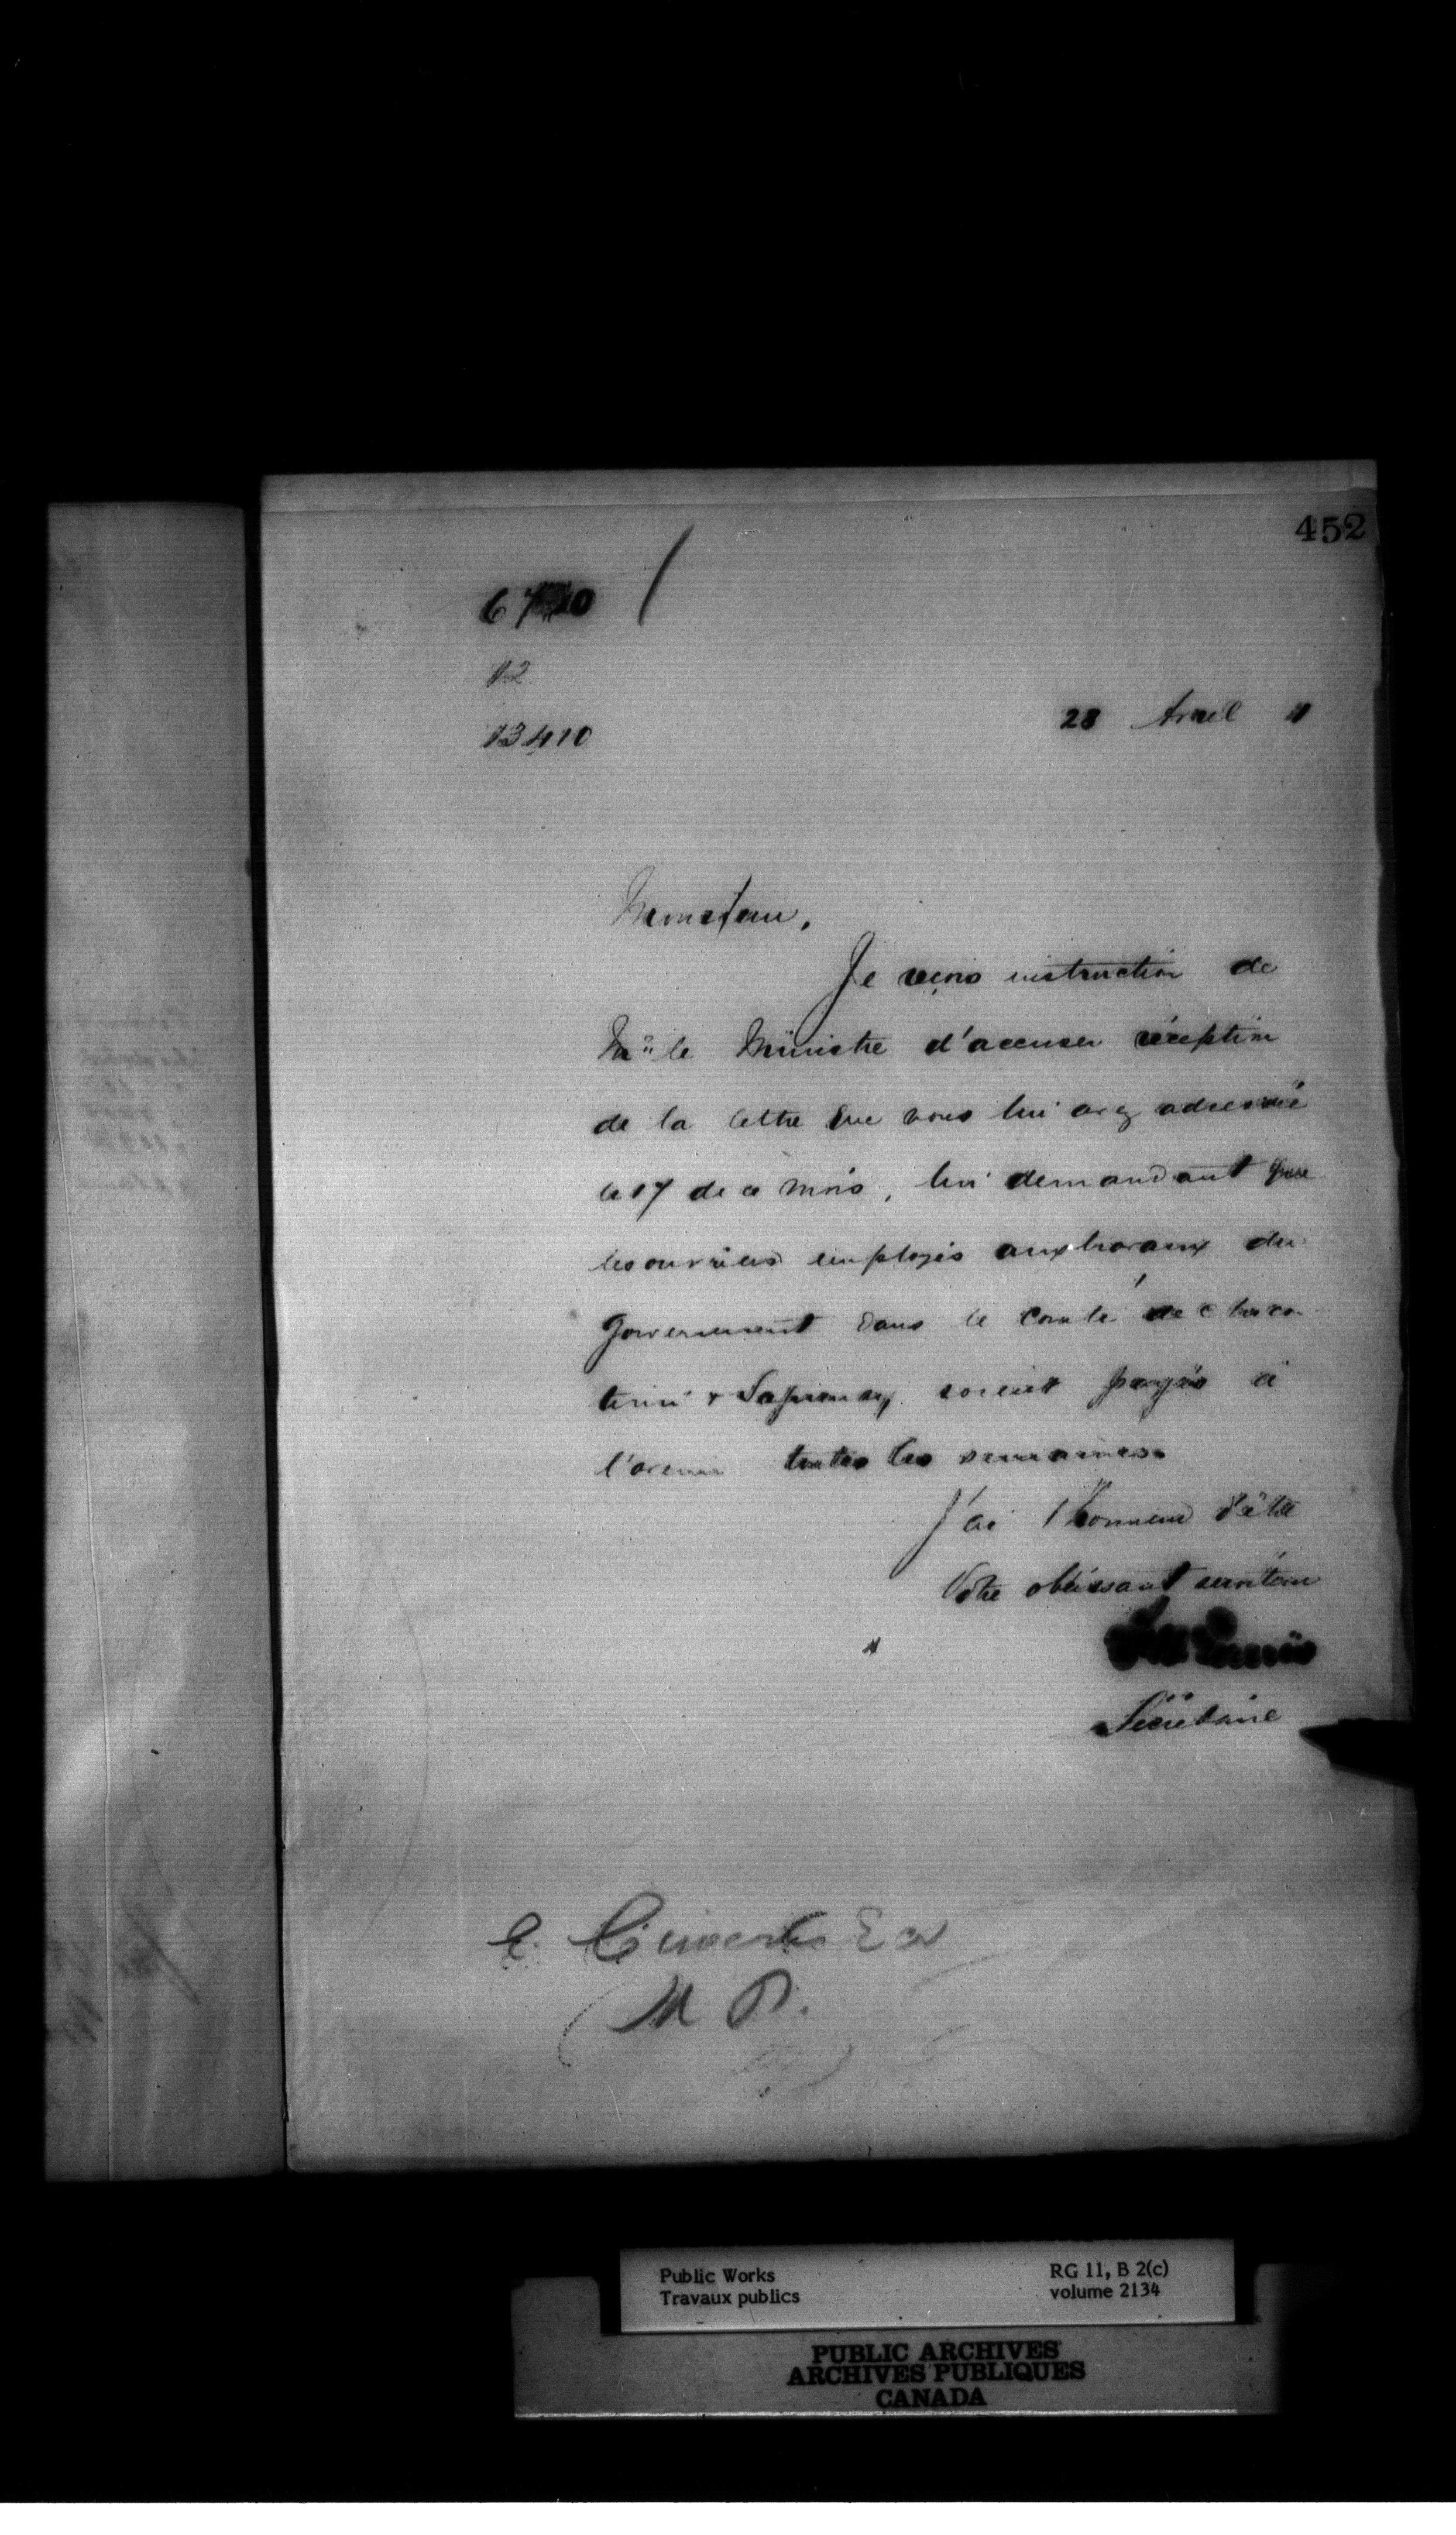 452
6710
12
13410
28 Avril
Monsieur,
Je reçois instruction de
Mr le Ministre d'accuser réception
de la lettre que vous lui avez adressée
le 17 de ce mois, lui demandant que
les ouvriers employés aux travaux du
Gouvernement dans le comté de Chicou
timi & Saguenay soient payés à
l'avenir toutes les semaines.
J'ai l'honneur d'être
Votre obéissant serviteur
Secrétaire
M P.
Public Works
Travaux publics
RG 11, B 2(c)
volume 2134
PUBLIC ARCHIVES
ARCHIVES PUBLIQUES
CANADA